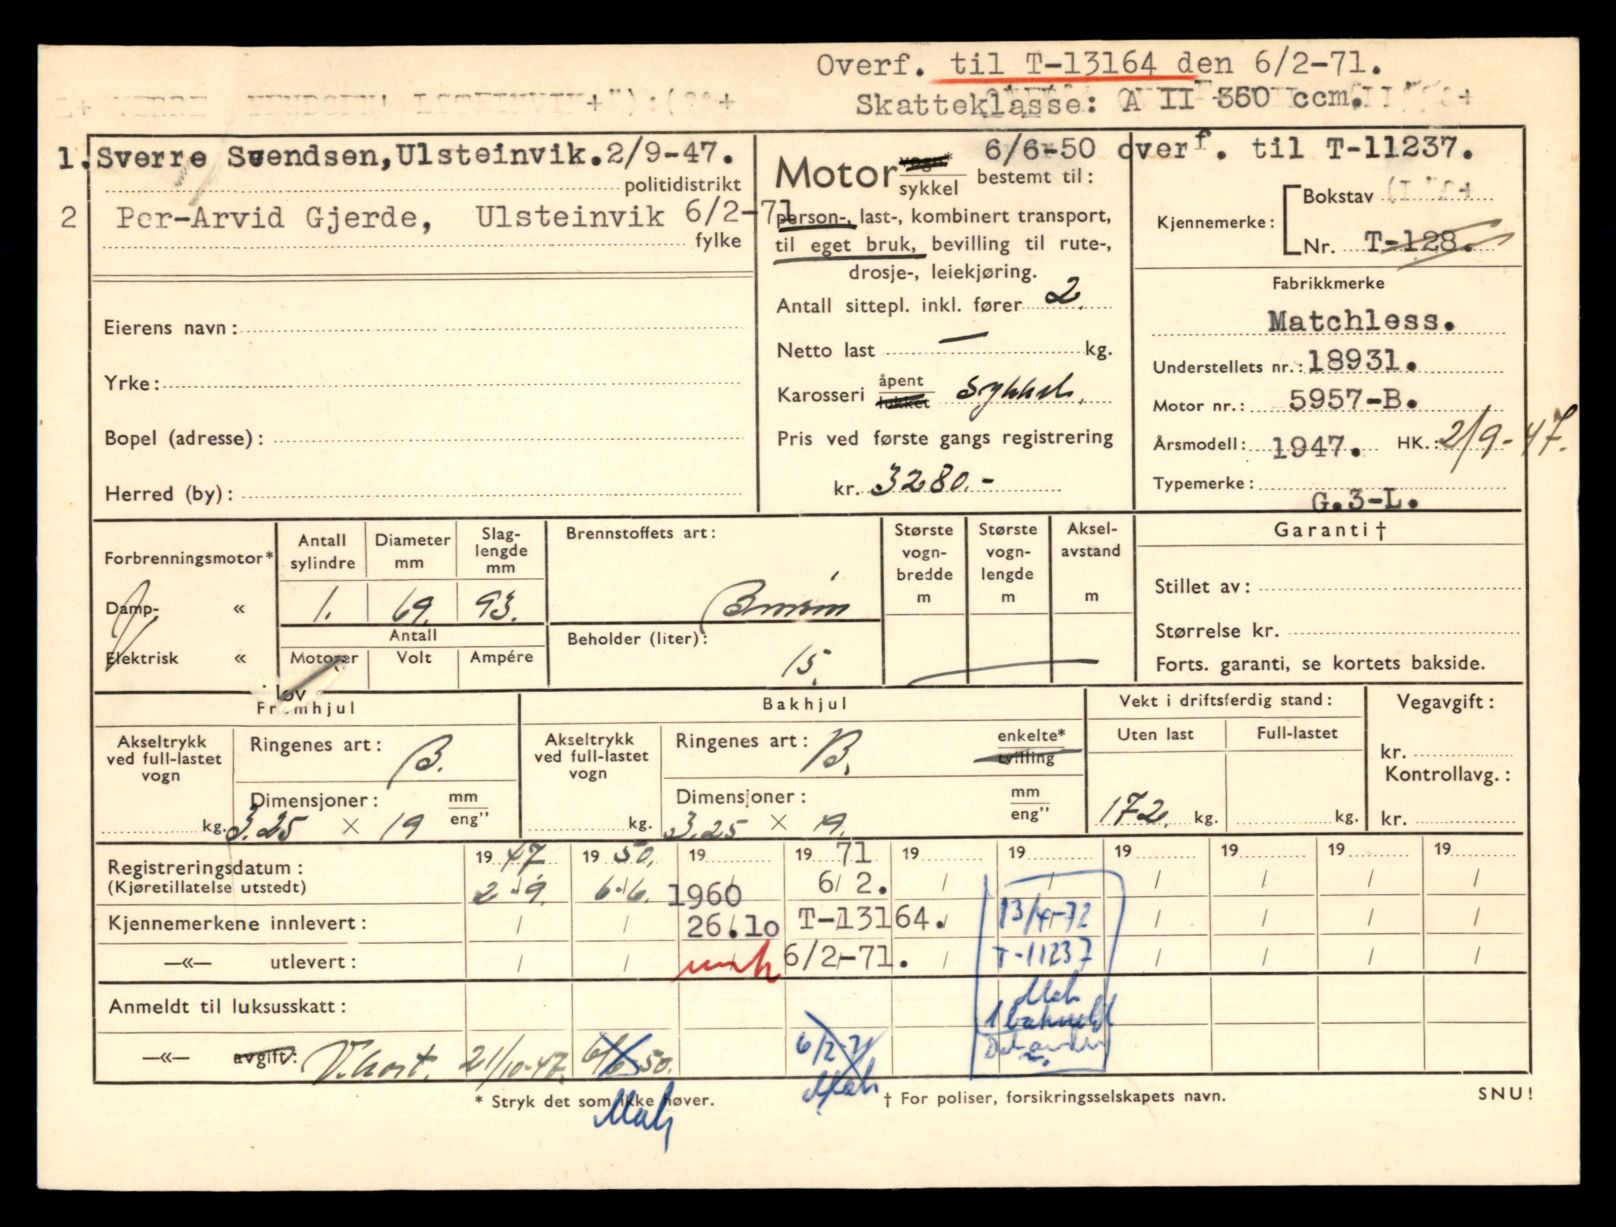 Overf. til T-13164 den 6/2-71.
Skatteklasse: A II 350 ccm.
1. Sverre Svendsen, Ulsteinvik. 2/9-47.
politidistrikt
2 Per-Arvid Gjerde, Ulsteinvik 6/2-71
fylke
Eierens navn:
Yrke:
Bopel (adresse):
Herred (by):
6/6-50 overf. til T-11237.
Motor vogn* sykkel bestemt til:
person-, last-, kombinert transport,
til eget bruk, bevilling til rute-,
drosje-, leiekjøring.
Antall sittepl. inkl. fører 2
Netto last — kg.
Karosseri åpent lukket Sykkel.
Pris ved første gangs registrering
kr. 3280.-
Kjennemerke: Bokstav
Nr. T-128.
Fabrikkmerke
Matchless.
Understellets nr.: 18931.
Motor nr.: 5957-B.
Årsmodell: 1947. HK.: 2/9-47.
Typemerke:
G.3-L.
Forbrenningsmotor*
Damp- «
Elektrisk «
Antall sylindre
1.
Diameter mm
69.
Slag-lengde mm
93.
Antall
Motorer Volt Ampére
Brennstoffets art:
Bensin
Beholder (liter):
15.
Største vogn-bredde m
Største vogn-lengde m
Aksel-avstand m
Garanti †
Stillet av:
Størrelse kr.
Forts. garanti, se kortets bakside.
Framhjul
Akseltrykk ved full-lastet vogn
kg.
Ringenes art: B.
Dimensjoner: mm eng"
3.25 × 19
Bakhjul
Akseltrykk ved full-lastet vogn
kg.
Ringenes art: B. enkelte* tvilling
Dimensjoner: mm eng"
3.25 × 19.
Vekt i driftsferdig stand:
Uten last Full-lastet
172 kg. kg.
Vegavgift:
kr.
Kontrollavg.:
kr.
Registreringsdatum: 19 47 19 50. 19 19 71 19 19 19 19 19 19
(Kjøretillatelse utstedt) 2/9. 6/6. 1960 6/2.
Kjennemerkene innlevert: 26.10 T-13164. 13/4-72
—«— utlevert: 6/2-71. T-11237
Anmeldt til luksusskatt:
—«— avgift: V.kort. 21/10-47. 6/6-50. 6/2-71
* Stryk det som ikke høver.
† For poliser, forsikringsselskapets navn.
SNU!